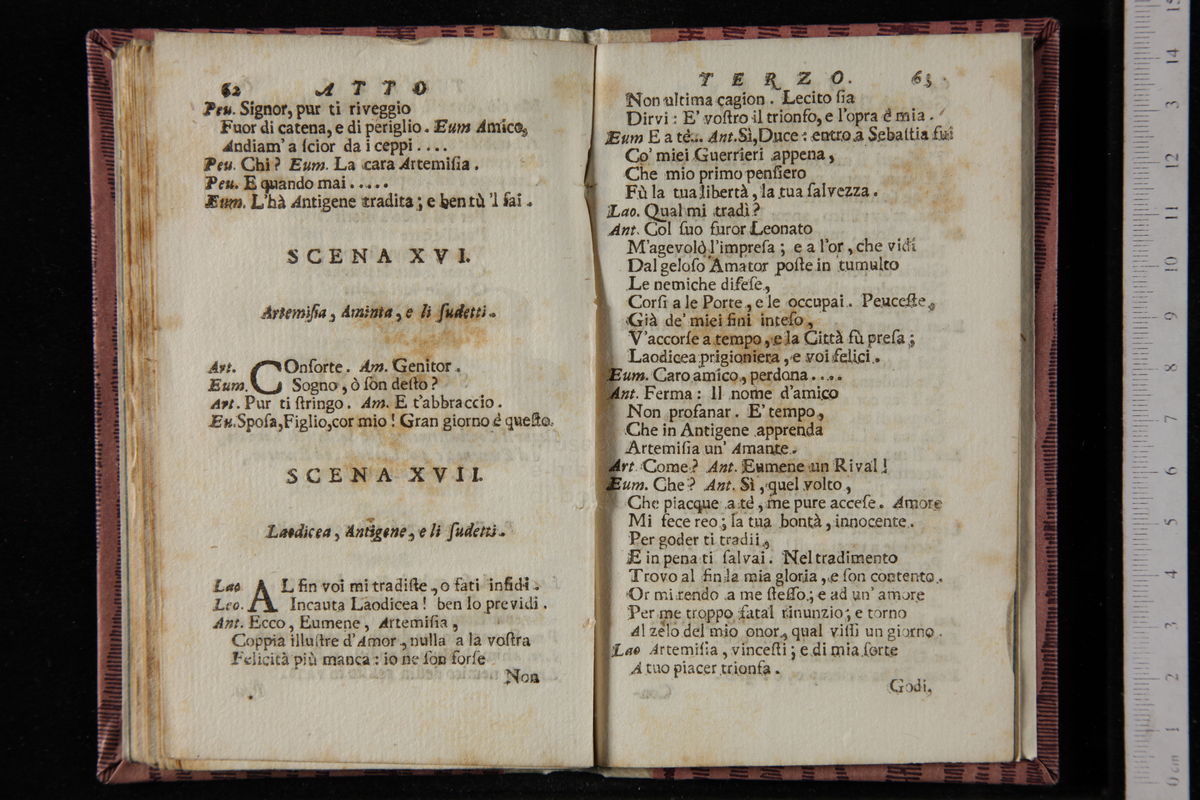 62 ATTO
Peu. Signor, pur ti riveggio
Fuor di catena, e di periglio. Eum Amico,
Andiam' a ſcior da i ceppi ....
Peu. Chi? Eum. La cara Artemiſia.
Peu. E quando mai .....
Eum. L'hà Antigene tradita; e ben tù 'l ſai.
SCENA XVI.
Artemiſia, Aminta, e li ſudetti.
Art. COnſorte. Am. Genitor.
Eum. Sogno, ò ſòn deſto?
Art. Pur ti ſtringo. Am. E t'abbraccio.
Eu. Spoſa, Figlio, cor mio! Gran giorno è queſto.
SCENA XVII.
Laodicea, Antigene, e li ſudetti.
Lao AL fin voi mi tradiſte, o fati infidi.
Leo. Incauta Laodicea! ben lo previdi.
Ant. Ecco, Eumene, Artemiſia,
Coppia illuſtre d'Amor, nulla a la voſtra
Felicità più manca: io ne ſon forſe
Non
TERZO. 63
Non ultima cagion. Lecito ſia
Dirvi: E' voſtro il trionfo, e l'opra è mia.
Eum E a tè... Ant. Sì, Duce: entro a Sebaſtia fui
Co' miei Guerrieri appena,
Che mio primo penſiero
Fù la tua libertà, la tua ſalvezza.
Lao. Qual mi tradì?
Ant. Col ſuo furor Leonato
M'agevolò l'impreſa; e a l'or, che vidi
Dal geloſo Amator poſte in tumulto
Le nemiche difeſe,
Corſi a le Porte, e le occupai. Peuceſte,
Già de' miei fini inteſo,
V'accorſe a tempo, e la Città fù preſa;
Laodicea prigioniera, e voi felici.
Eum. Caro amico, perdona ....
Ant. Ferma: Il nome d'amico
Non profanar. E' tempo,
Che in Antigene apprenda
Artemiſia un' Amante.
Art Come? Ant. Eumene un Rival!
Eum. Che? Ant. Sì, quel volto,
Che piacque a tè, me pure acceſe. Amore
Mi fece reo; la tua bontà, innocente.
Per goder ti tradii,
E in pena ti ſalvai. Nel tradimento
Trovo al fin la mia gloria, e ſon contento.
Or mi rendo a me ſteſſo; e ad un' amore
Per me troppo fatal rinunzio; e torno
Al zelo del mio onor, qual viſſi un giorno.
Lao Artemiſia, vinceſti; e di mia ſorte
A tuo piacer trionfa.
Godi,